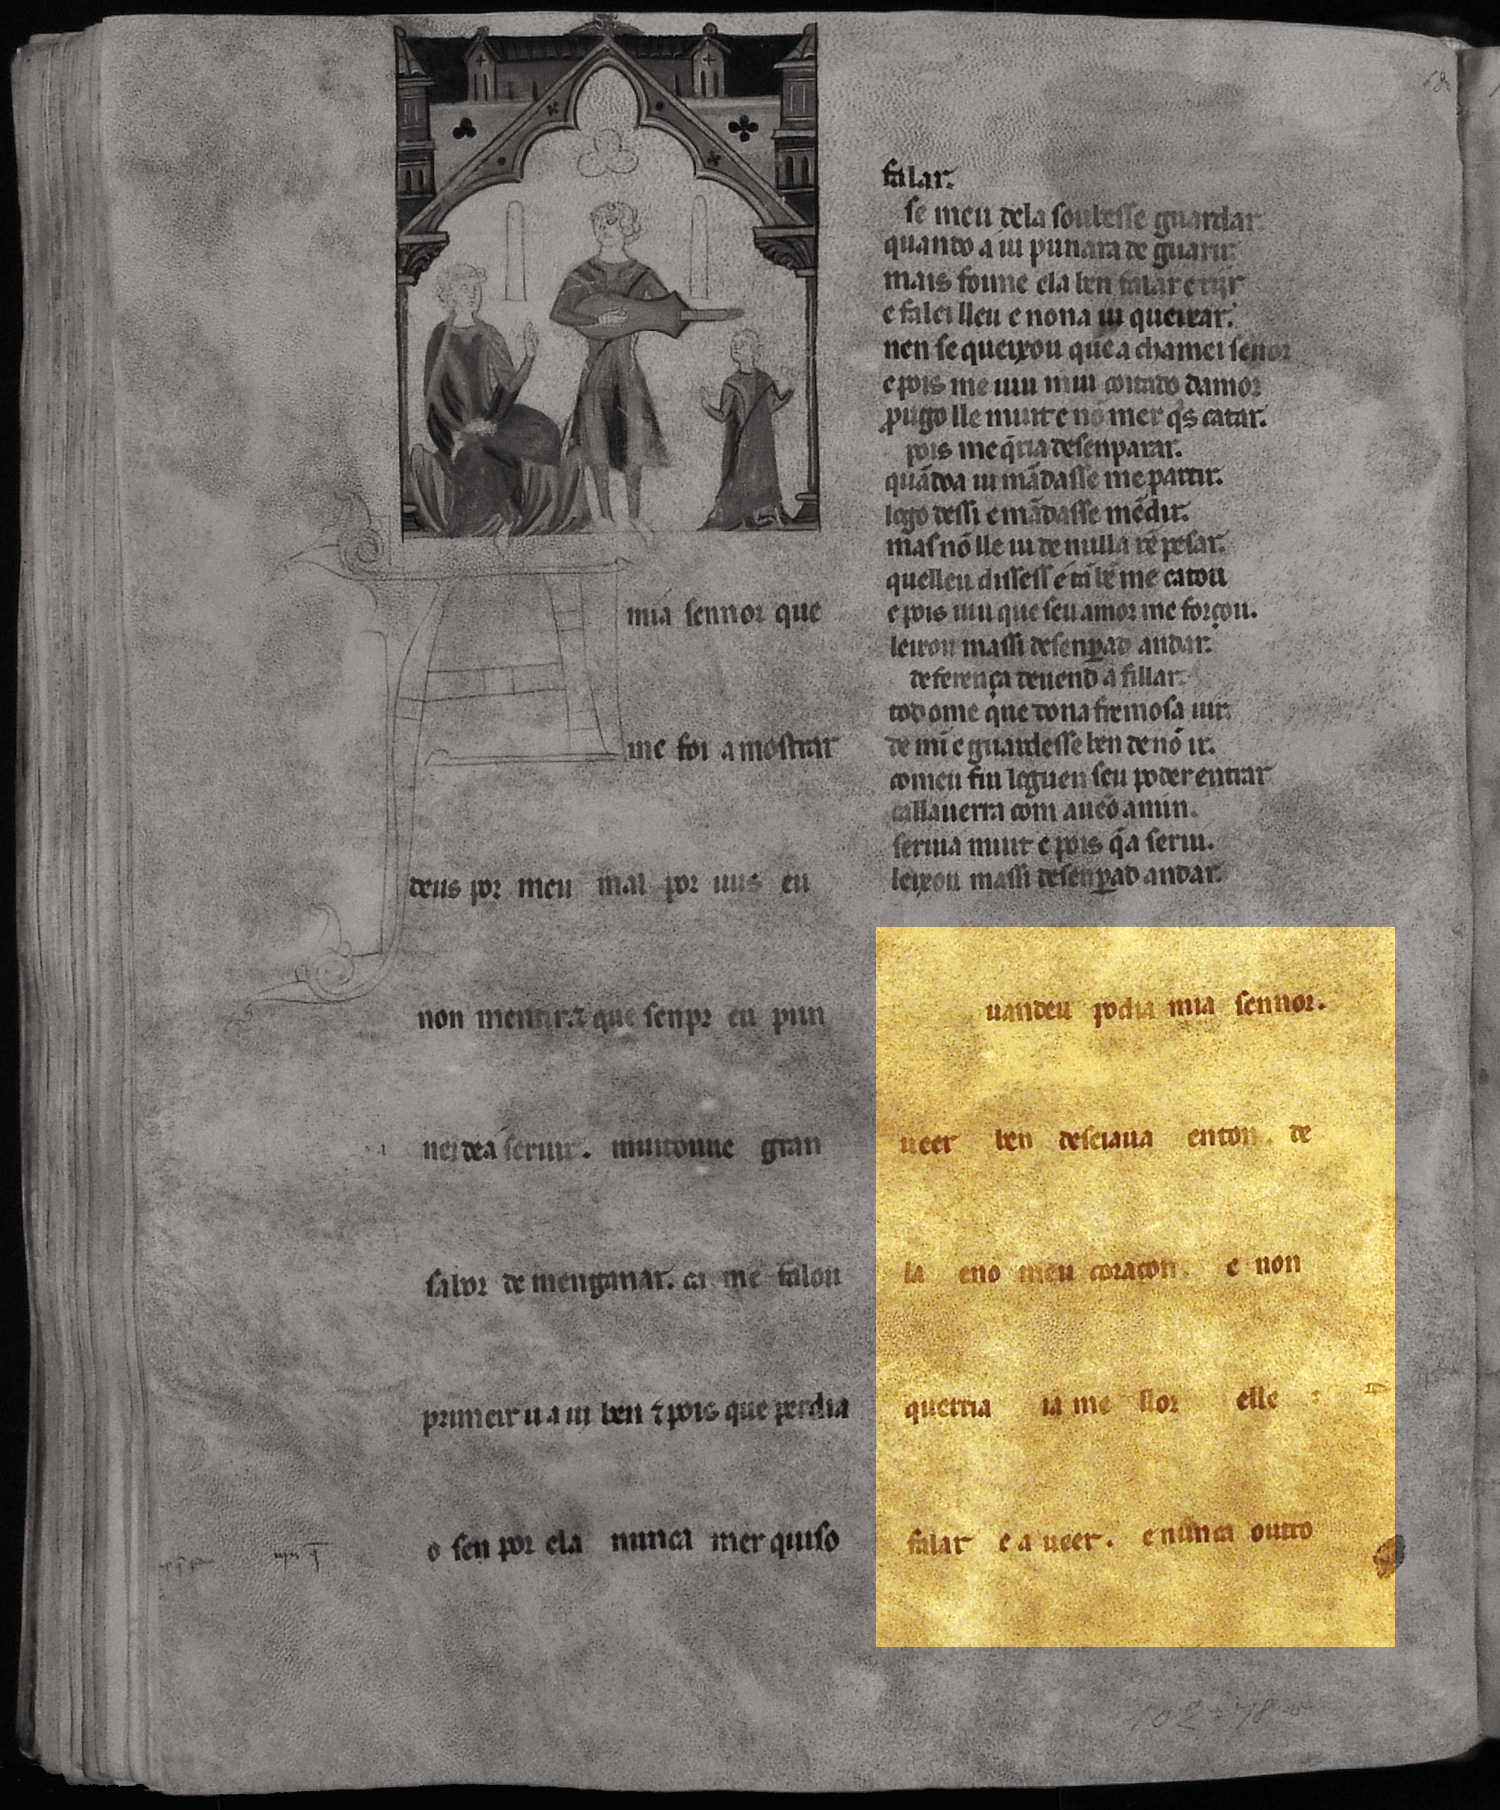 mia sennor que
me foi amostrar
deus por meu mal por uus eu
non mentira que senpr eu pun
nei dea seruir. muitome gran
sabor de menganar. ca me falou
primeir u a ui ben ⁊ pois que perdia
o sen por ela nunca mer quiso
falar.
se meu dela soubesse guardar
quando a ui punara de guarir.
mais foime ela ben falar e rijr
e falei lleu e nona ui queixar.
nen se queixou que a chamei sennor
e pois me uiu mui coitado damor
prugo lle muit e nõ mer q̄s catar.
pois me q̄ria desenparar.
quãdoa ui mãdasse me partir.
logo dessi e mãdasse mẽdir.
mas nõ lle ui de nulla rẽ pesar.
quelleu dissess e tã bẽ me catou
e pois uiu que seu amor me forçou.
leixou massi desenꝑad andar.
deferença deuend a fillar
tod ome que dona fremosa uir.
de mi e guardesse ben de nõ ir.
comeu fui loguen seu poder entrar
callauerra com aueo amin.
seruia muit e pois q̄a serui.
leixou massi desenꝑad andar.
uandeu podia mia sennor.
ueer ben deseiaua enton. de
la eno meu coraçon. e non
querria ia me llor elle
falar e a ueer. e nunca outro